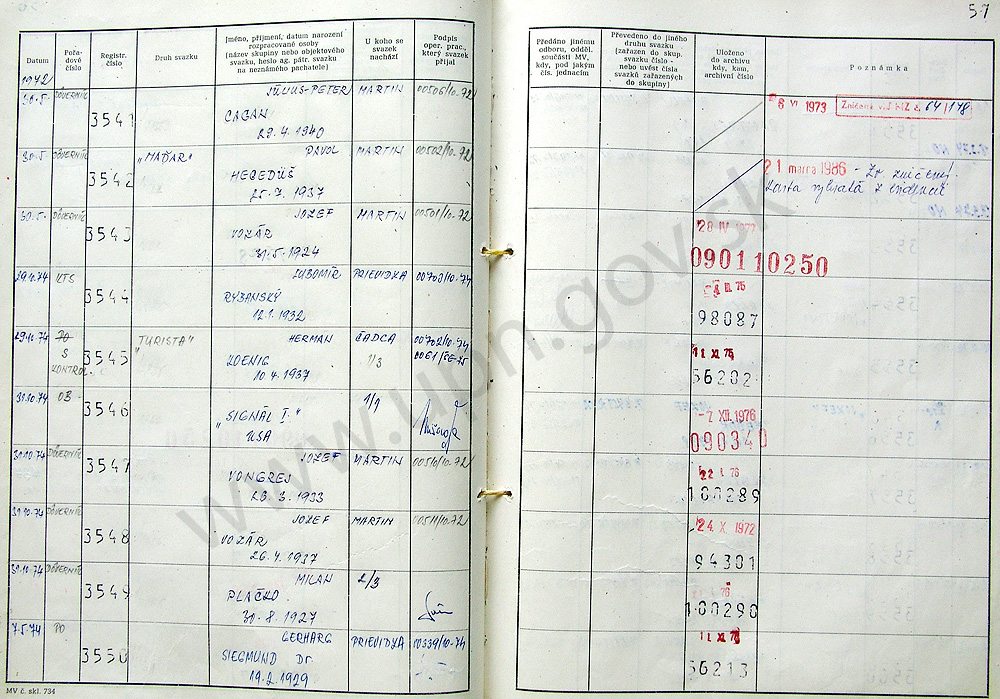 57
Datum
Pořa-
dové
číslo
Registr.
číslo
Druh svazku
Jméno, příjmení, datum narození
rozpracované osoby
(název skupiny nebo objektového
svazku, heslo ag. pátr. svazku
na neznámého pachatele)
U koho se
svazek
nachází
Podpis
oper. prac.,
který svazek
přijal
Předáno jinému
odboru, odděl.
součásti MV,
kdy, pod jakým
čís. jednacím
Převedeno do jiného
druhu svazku
(zařazen do skup.
svazku číslo -
nebo uvést čísla
svazků zařazených
do skupiny)
Uloženo
do archivu
kdy, kam,
archivní číslo
Poznámka
1972
30.5. DÔVERNÍK JÚLIUS-PETER MARTIN 00506/10-72
3541 CAGAN
29.4.1940
6 VI 1973 64/178
30.5. DÔVERNÍK „MAĎAR" PAVOL MARTIN 00502/10-72
3542 HEGEDÜŠ
25.7.1937
21 marca 1986 - Zv. zničený.
Karta vybratá z evidencie
30.5. DÔVERNÍK JOZEF MARTIN 00501/10-72
3543 VOZÁR
31.5.1924
28 IV 1977
090110250
29.4.74 KTS ĽUBOMÍR PRIEVIDZA 00703/10-74
3544 RYBANSKÝ
12.1.1932
98087
29.10.74 PO „TURISTA" HERMAN ČADCA 00702/10-74
S 3545 KOENIG 1/3
KONTROL. 10.4.1937
11 XI 76
56202
31.10.74 OB 1/1
3546 „SIGNÁL I."
USA
-7 XII. 1976
090340
30.10.74 DÔVERNÍK JOZEF MARTIN 00516/10-72
3547 VONGREJ
26.3.1933
22 76
100289
31.10.74 DÔVERNÍK JOZEF MARTIN 00511/10-72
3548 VOZÁR
26.4.1937
24. X. 1972
94301
30.10.74 DÔVERNÍK MILAN 2/3
3549 PLAČKO
30.8.1927
76
100290
7.5.74 PO GERHARG PRIEVIDZA 00339/10-74
3550 SIEGMUND Dr.
19.2.1929
56213
MV č. skl. 734
www.upn.gov.sk